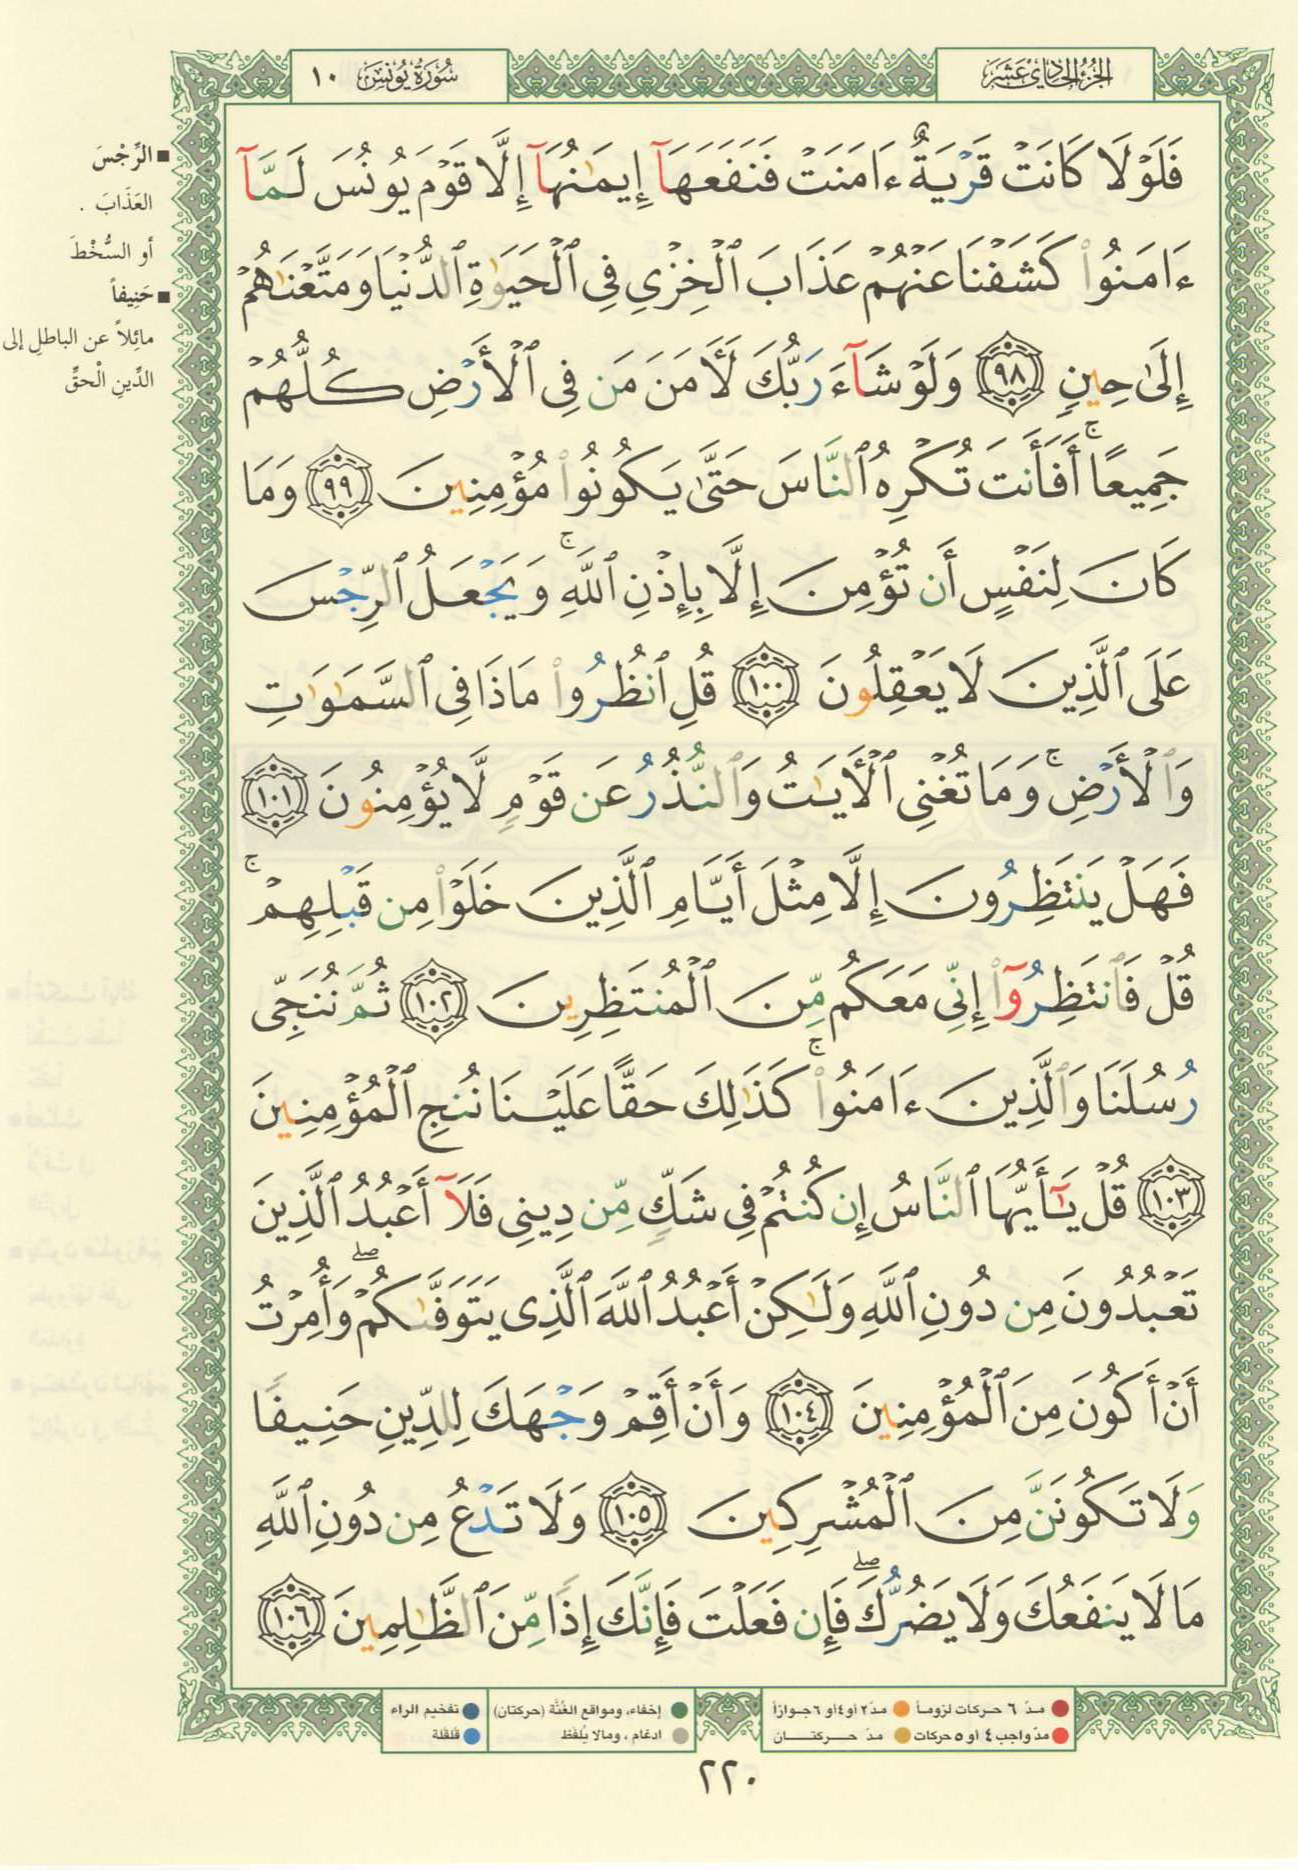 الجزء الحادي عشر
سورة يونس ١٠
فَلَوْلَا كَانَتْ قَرْيَةٌ ءَامَنَتْ فَنَفَعَهَآ إِيمَٰنُهَآ إِلَّا قَوْمَ يُونُسَ لَمَّآ
ءَامَنُوا۟ كَشَفْنَا عَنْهُمْ عَذَابَ ٱلْخِزْىِ فِى ٱلْحَيَوٰةِ ٱلدُّنْيَا وَمَتَّعْنَٰهُمْ
إِلَىٰ حِينٍ ٩٨ وَلَوْ شَآءَ رَبُّكَ لَـَٔامَنَ مَن فِى ٱلْأَرْضِ كُلُّهُمْ
جَمِيعًا ۚ أَفَأَنتَ تُكْرِهُ ٱلنَّاسَ حَتَّىٰ يَكُونُوا۟ مُؤْمِنِينَ ٩٩ وَمَا
كَانَ لِنَفْسٍ أَن تُؤْمِنَ إِلَّا بِإِذْنِ ٱللَّهِ ۚ وَيَجْعَلُ ٱلرِّجْسَ
عَلَى ٱلَّذِينَ لَا يَعْقِلُونَ ١٠٠ قُلِ ٱنظُرُوا۟ مَاذَا فِى ٱلسَّمَٰوَٰتِ
وَٱلْأَرْضِ ۚ وَمَا تُغْنِى ٱلْـَٔايَٰتُ وَٱلنُّذُرُ عَن قَوْمٍ لَّا يُؤْمِنُونَ ١٠١
فَهَلْ يَنتَظِرُونَ إِلَّا مِثْلَ أَيَّامِ ٱلَّذِينَ خَلَوْا۟ مِن قَبْلِهِمْ ۚ
قُلْ فَٱنتَظِرُوٓا۟ إِنِّى مَعَكُم مِّنَ ٱلْمُنتَظِرِينَ ١٠٢ ثُمَّ نُنَجِّى
رُسُلَنَا وَٱلَّذِينَ ءَامَنُوا۟ ۚ كَذَٰلِكَ حَقًّا عَلَيْنَا نُنجِ ٱلْمُؤْمِنِينَ
١٠٣ قُلْ يَٰٓأَيُّهَا ٱلنَّاسُ إِن كُنتُمْ فِى شَكٍّ مِّن دِينِى فَلَآ أَعْبُدُ ٱلَّذِينَ
تَعْبُدُونَ مِن دُونِ ٱللَّهِ وَلَٰكِنْ أَعْبُدُ ٱللَّهَ ٱلَّذِى يَتَوَفَّىٰكُمْ ۖ وَأُمِرْتُ
أَنْ أَكُونَ مِنَ ٱلْمُؤْمِنِينَ ١٠٤ وَأَنْ أَقِمْ وَجْهَكَ لِلدِّينِ حَنِيفًا
وَلَا تَكُونَنَّ مِنَ ٱلْمُشْرِكِينَ ١٠٥ وَلَا تَدْعُ مِن دُونِ ٱللَّهِ
مَا لَا يَنفَعُكَ وَلَا يَضُرُّكَ ۖ فَإِن فَعَلْتَ فَإِنَّكَ إِذًا مِّنَ ٱلظَّٰلِمِينَ ١٠٦
■ الرِّجْسَ
العَذَابَ .
أو السُّخْطَ
■ حَنِيفاً
مائِلاً عن الباطلِ إلى
الدِّينِ الْحقِّ
مدّ ٦ حركات لزوماً مدّ٢ أو٤أو ٦جوازاً
مدّ واجب ٤ أو ٥ حركات مدّ حركتــان
إخفاء، ومواقع الغُنَّة (حركتان)
ادغام ، ومالا يُلفَظ
تفخيم الراء
قلقلة
٢٢٠